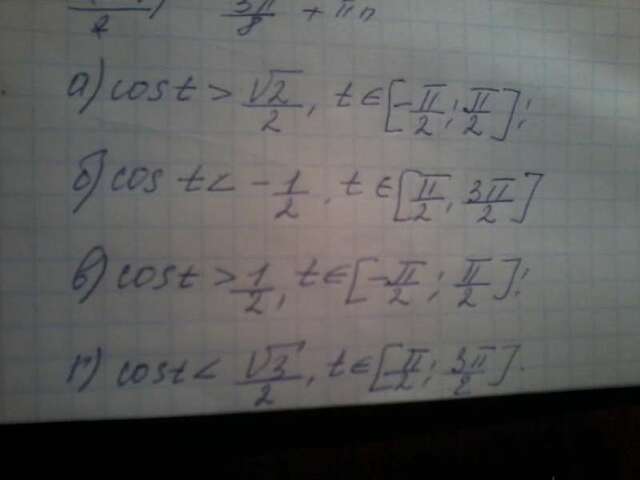 2) 3π/8 + πn
а) cos t > √2/2, t ∈ [-π/2; π/2];
б) cos t < -1/2, t ∈ [π/2; 3π/2]
в) cos t > 1/2, t ∈ [-π/2; π/2];
г) cos t < √3/2, t ∈ [-π/2; 3π/2].